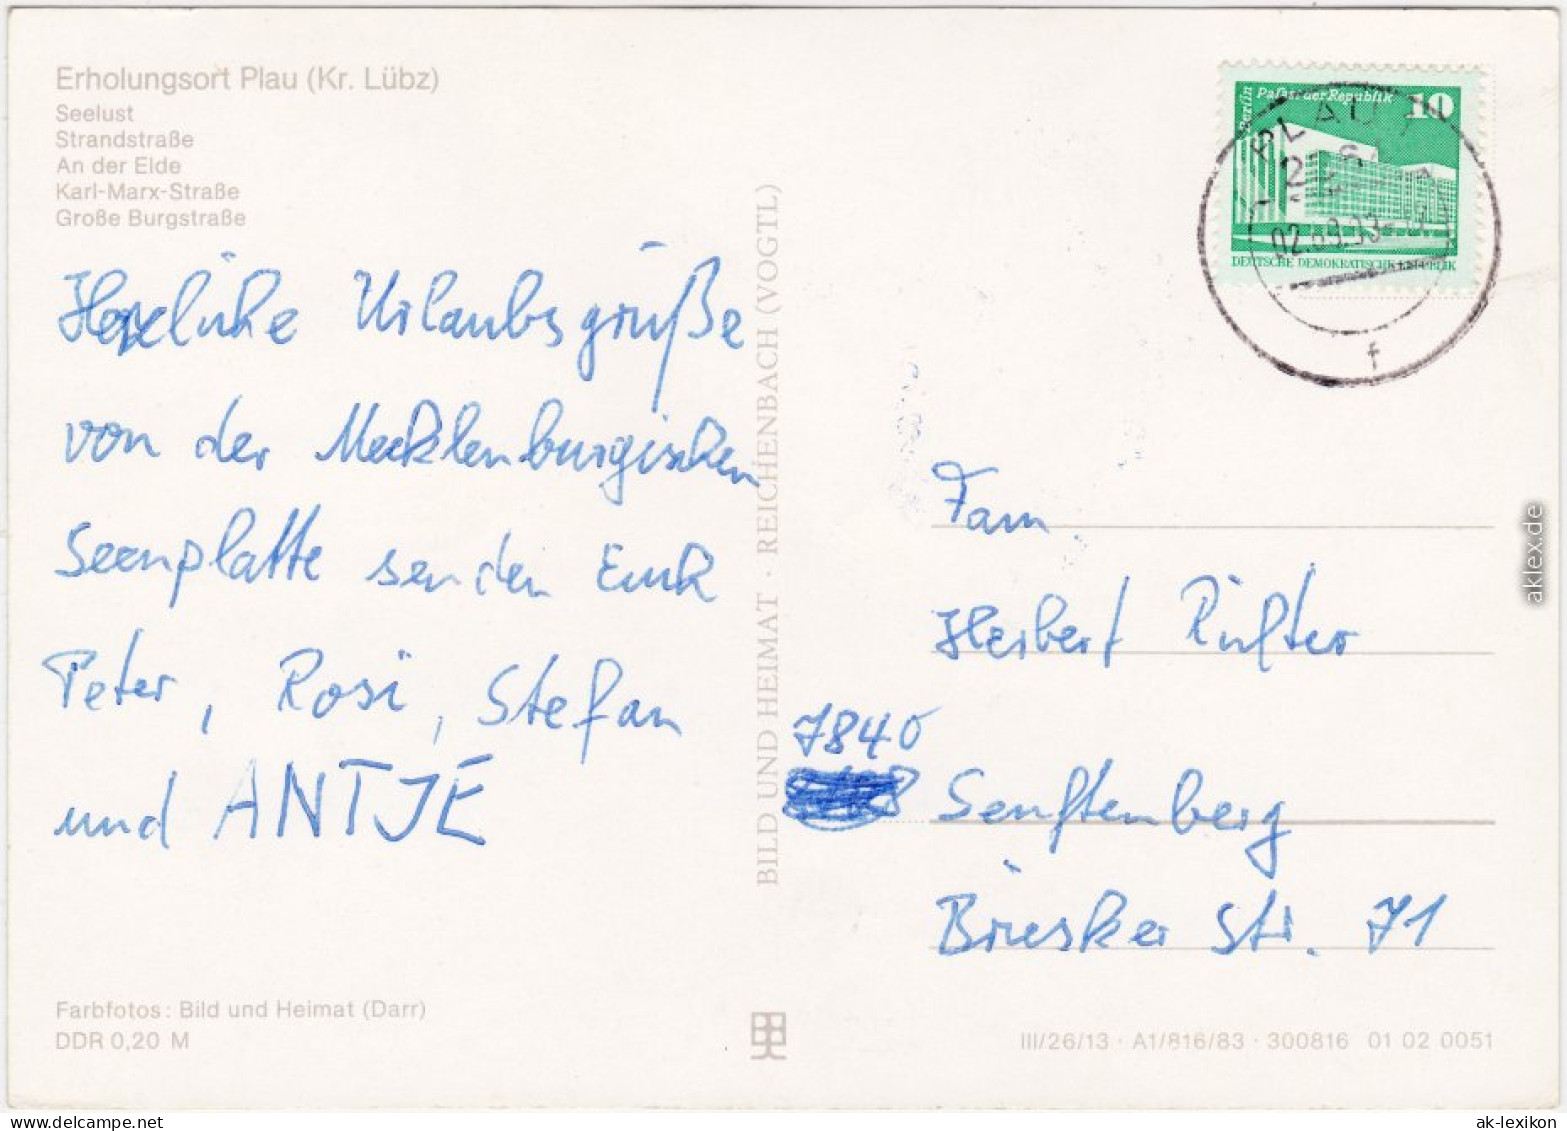 Erholungsort Plau (Kr. Lübz)
Seelust
Strandstraße
An der Elde
Karl-Marx-Straße
Große Burgstraße
Herzliche Urlaubsgrüße
von der Mecklenburgischen
Seenplatte senden Euch
Peter, Rosi, Stefan
und ANTJE
Farbfotos: Bild und Heimat (Darr)
DDR 0,20 M
BILD UND HEIMAT · REICHENBACH (VOGTL)
Berlin
Palast der Republik
10
DEUTSCHE DEMOKRATISCHE REPUBLIK
PLAU
f
Fam
Herbert Richter
7840
Senftenberg
Briesker Str. 71
III/26/13 · A1/816/83 · 300816 01 02 0051
aklex.de
ak-lexikon